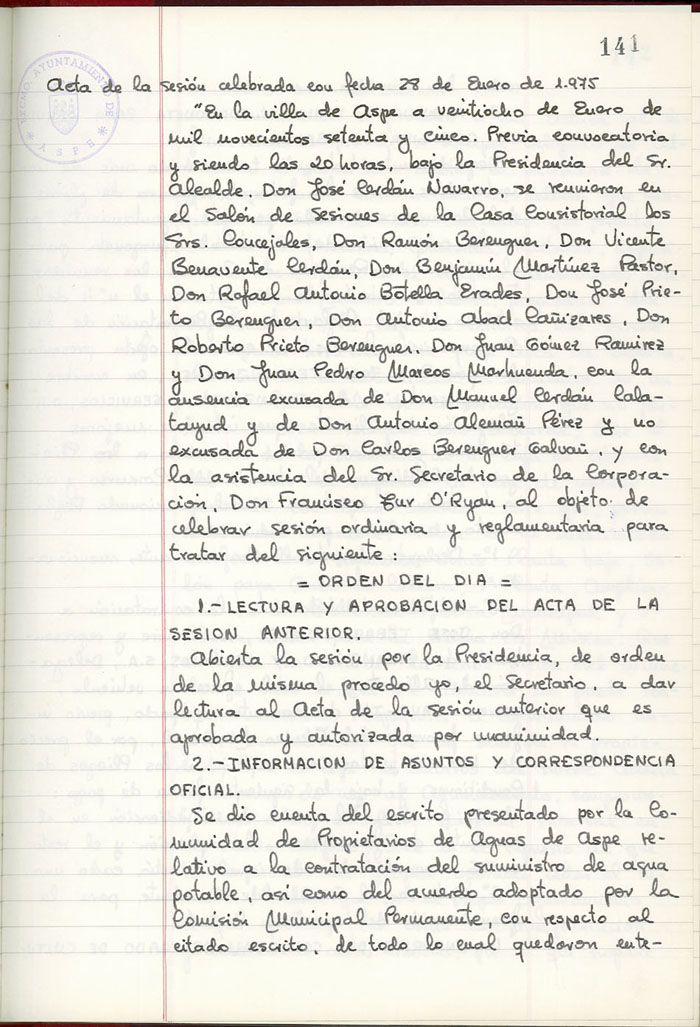 141
EXCMO. AYUNTAMIENTO DE
ASPE
Acta de la sesión celebrada con fecha 28 de Enero de 1.975
"En la villa de Aspe a veintiocho de Enero de
mil novecientos setenta y cinco. Previa convocatoria
y siendo las 20 horas, bajo la Presidencia del Sr.
Alcalde. Don José Cerdán Navarro, se reunieron en
el Salón de Sesiones de la Casa Consistorial los
Srs. Concejales, Don Ramón Berenguer, Don Vicente
Benavente Cerdán, Don Benjamín Martínez Pastor,
Don Rafael Antonio Botella Erades, Don José Prie-
to Berenguer, Don Antonio Abad Cañizares, Don
Roberto Prieto Berenguer. Don Juan Gómez Ramirez
y Don Juan Pedro Marcos Marhuenda, con la
ausencia excusada de Don Manuel Cerdán Cala-
tayud y de Don Antonio Alemañ Pérez y no
excusada de Don Carlos Berenguer Galvañ, y con
la asistencia del Sr. Secretario de la Corpora-
ción, Don Francisco Zur O'Ryan, al objeto de
celebrar sesión ordinaria y reglamentaria para
tratar del siguiente:
= ORDEN DEL DIA =
1.- LECTURA Y APROBACION DEL ACTA DE LA
SESION ANTERIOR.
Abierta la sesión por la Presidencia, de orden
de la misma procedo yo, el Secretario, a dar
lectura al Acta de la sesión anterior que es
aprobada y autorizada por unanimidad.
2.- INFORMACION DE ASUNTOS Y CORRESPONDENCIA
OFICIAL.
Se dio cuenta del escrito presentado por la Co-
munidad de Propietarios de Aguas de Aspe re-
lativo a la contratación del suministro de agua
potable, así como del acuerdo adoptado por la
Comisión Municipal Permanente, con respecto al
citado escrito, de todo lo cual quedaron ente-